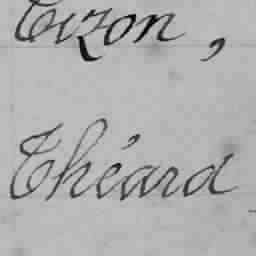 Tizon,
Théard